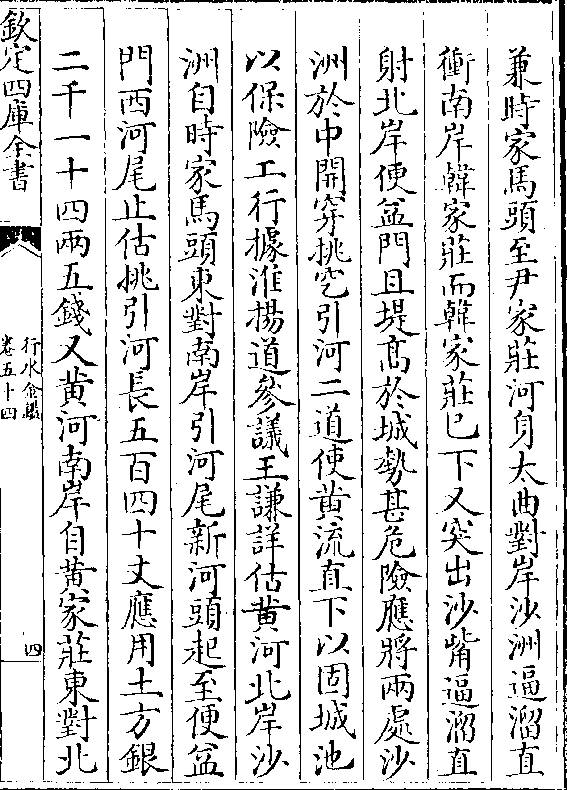 兼時家馬頭至尹家莊河身太曲對岸沙洲逼溜直
衝南岸韓家莊而韓家莊已下又突出沙觜逼溜直
射北岸便盆門且堤髙於城勢甚危險應將兩處沙
洲於中開穿挑挖引河二道使黄流直下以固城池
以保險工行據淮揚道參議王謙詳估黄河北岸沙
洲自時家馬頭東對南岸引河尾新河頭起至便盆
門西河尾止估挑引河長五百四十丈應用土方銀
二千一十四兩五錢又黄河南岸自黄家莊東對北
欽定四庫全書
行水金鑑
卷五十四
四